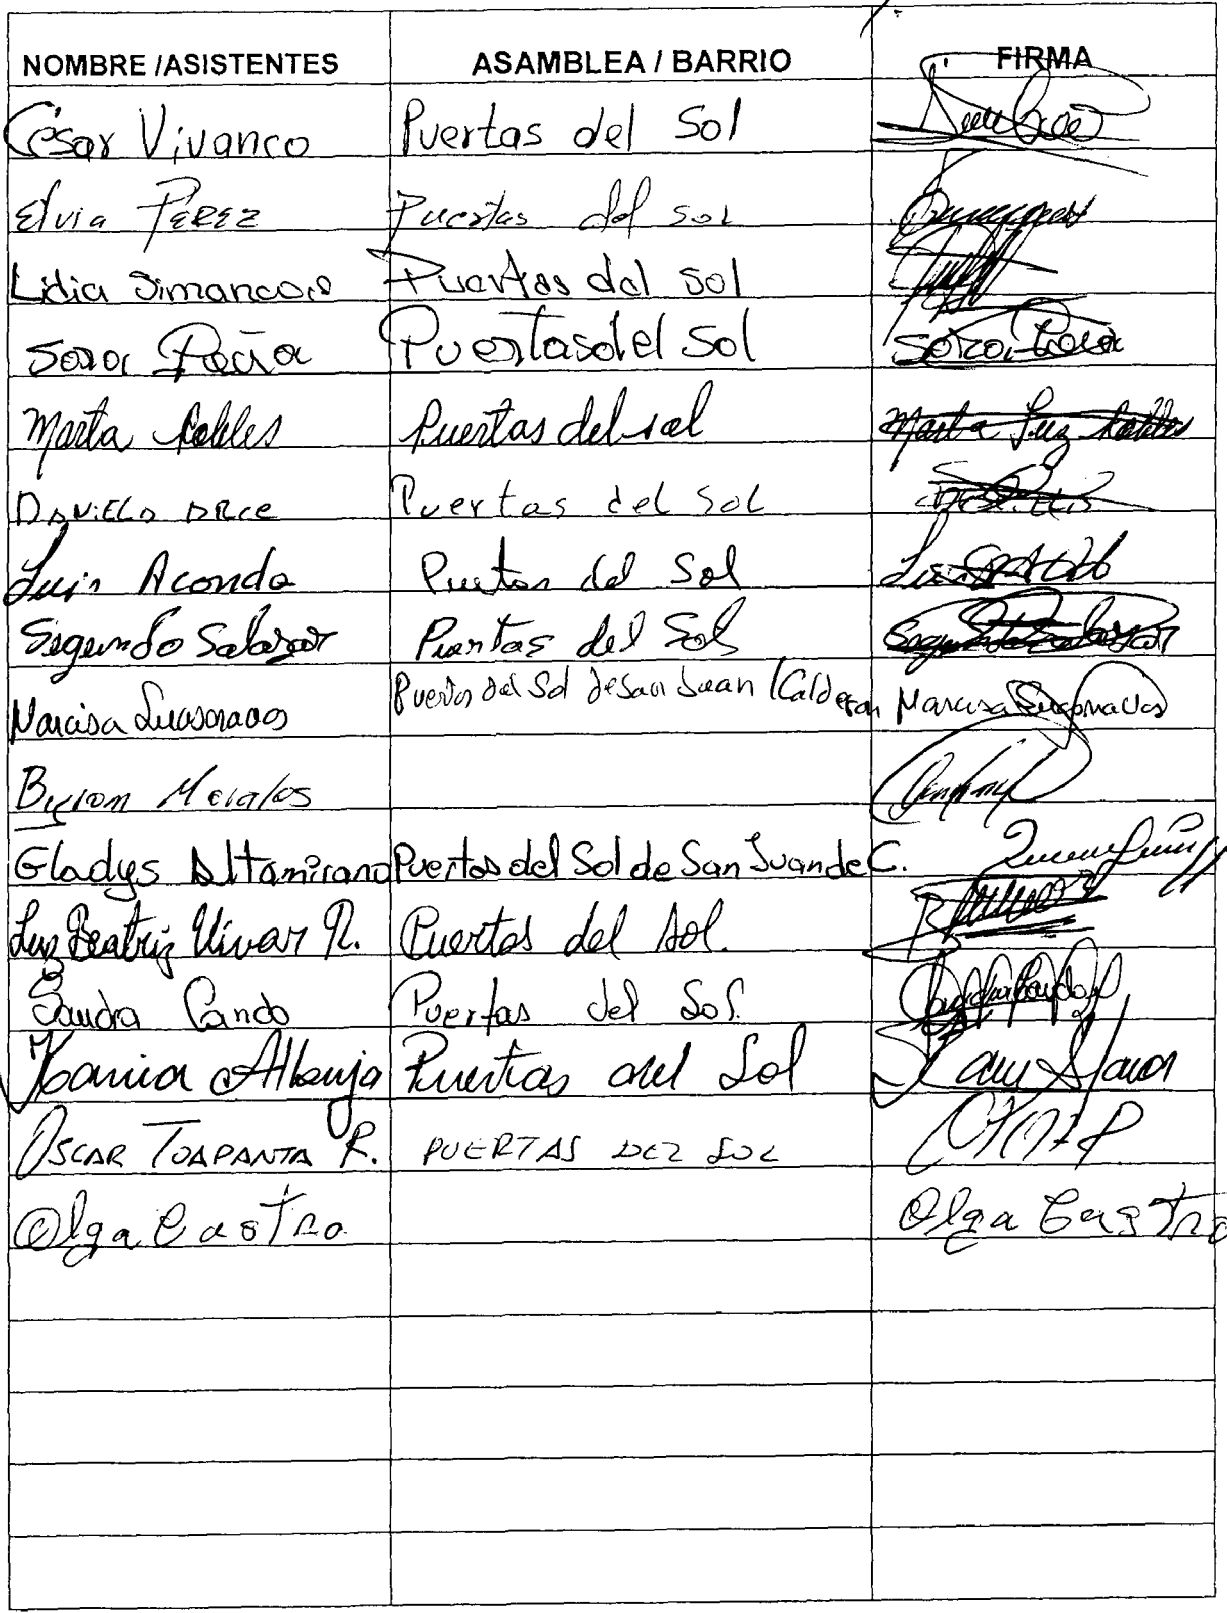 NOMBRE /ASISTENTES ASAMBLEA / BARRIO FIRMA
César Vivanco Puertas del Sol
Elvia PEREZ Puertas del SOL
Lidia Simancas Puertas del Sol
Sara Puertas del Sol
Marta Robles Puertas del sol Marta Luz Robles
DANIELA ARCE Puertas del SOL
Luis Aconda Puertas del Sol
Segundo Salazar Puertas del Sol Segundo Salazar
Narcisa Puertas del Sol de San Juan (Calderon Narcisa
Byron Morales
Gladys Altamirano Puertas del Sol de San Juan de C.
Luz Beatriz Vivar R. Puertas del Sol.
Sandra Cando Puertas del Sol.
Albuja Puertas del Sol
OSCAR TOAPANTA R. PUERTAS DEL SOL
Olga Castro Olga Castro